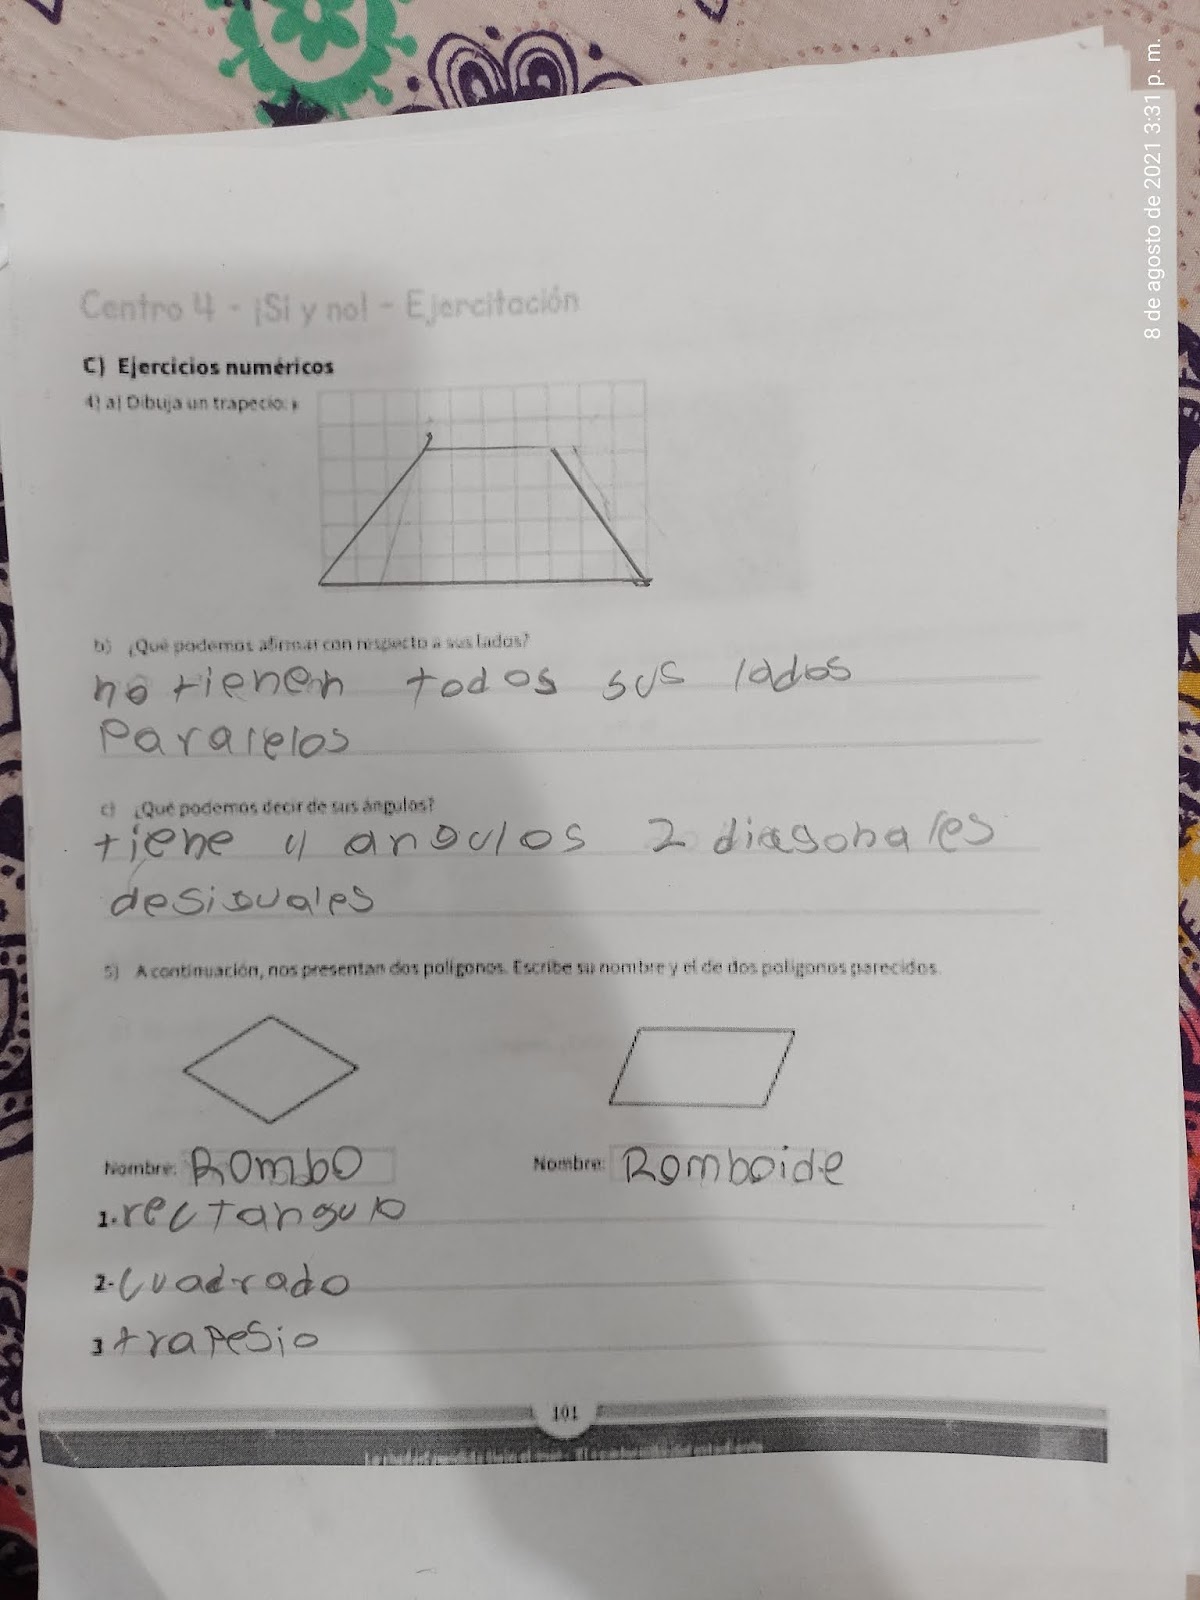 8 de agosto de 2021 3:31 p. m.
Centro 4 - ¡Si y no! - Ejercitación
C) Ejercicios numéricos
4) a) Dibuja un trapecio:
b) ¿Qué podemos afirmar con respecto a sus lados?
no tienen todos sus lados
Paralelos
c) ¿Qué podemos decir de sus ángulos?
tiene 4 angulos 2 diagonales
desiguales
5) A continuación, nos presentan dos polígonos. Escribe su nombre y el de dos polígonos parecidos.
Nombre: Rombo Nombre: Romboide
1- rectangulo
2- cuadrado
3 trapesio
101